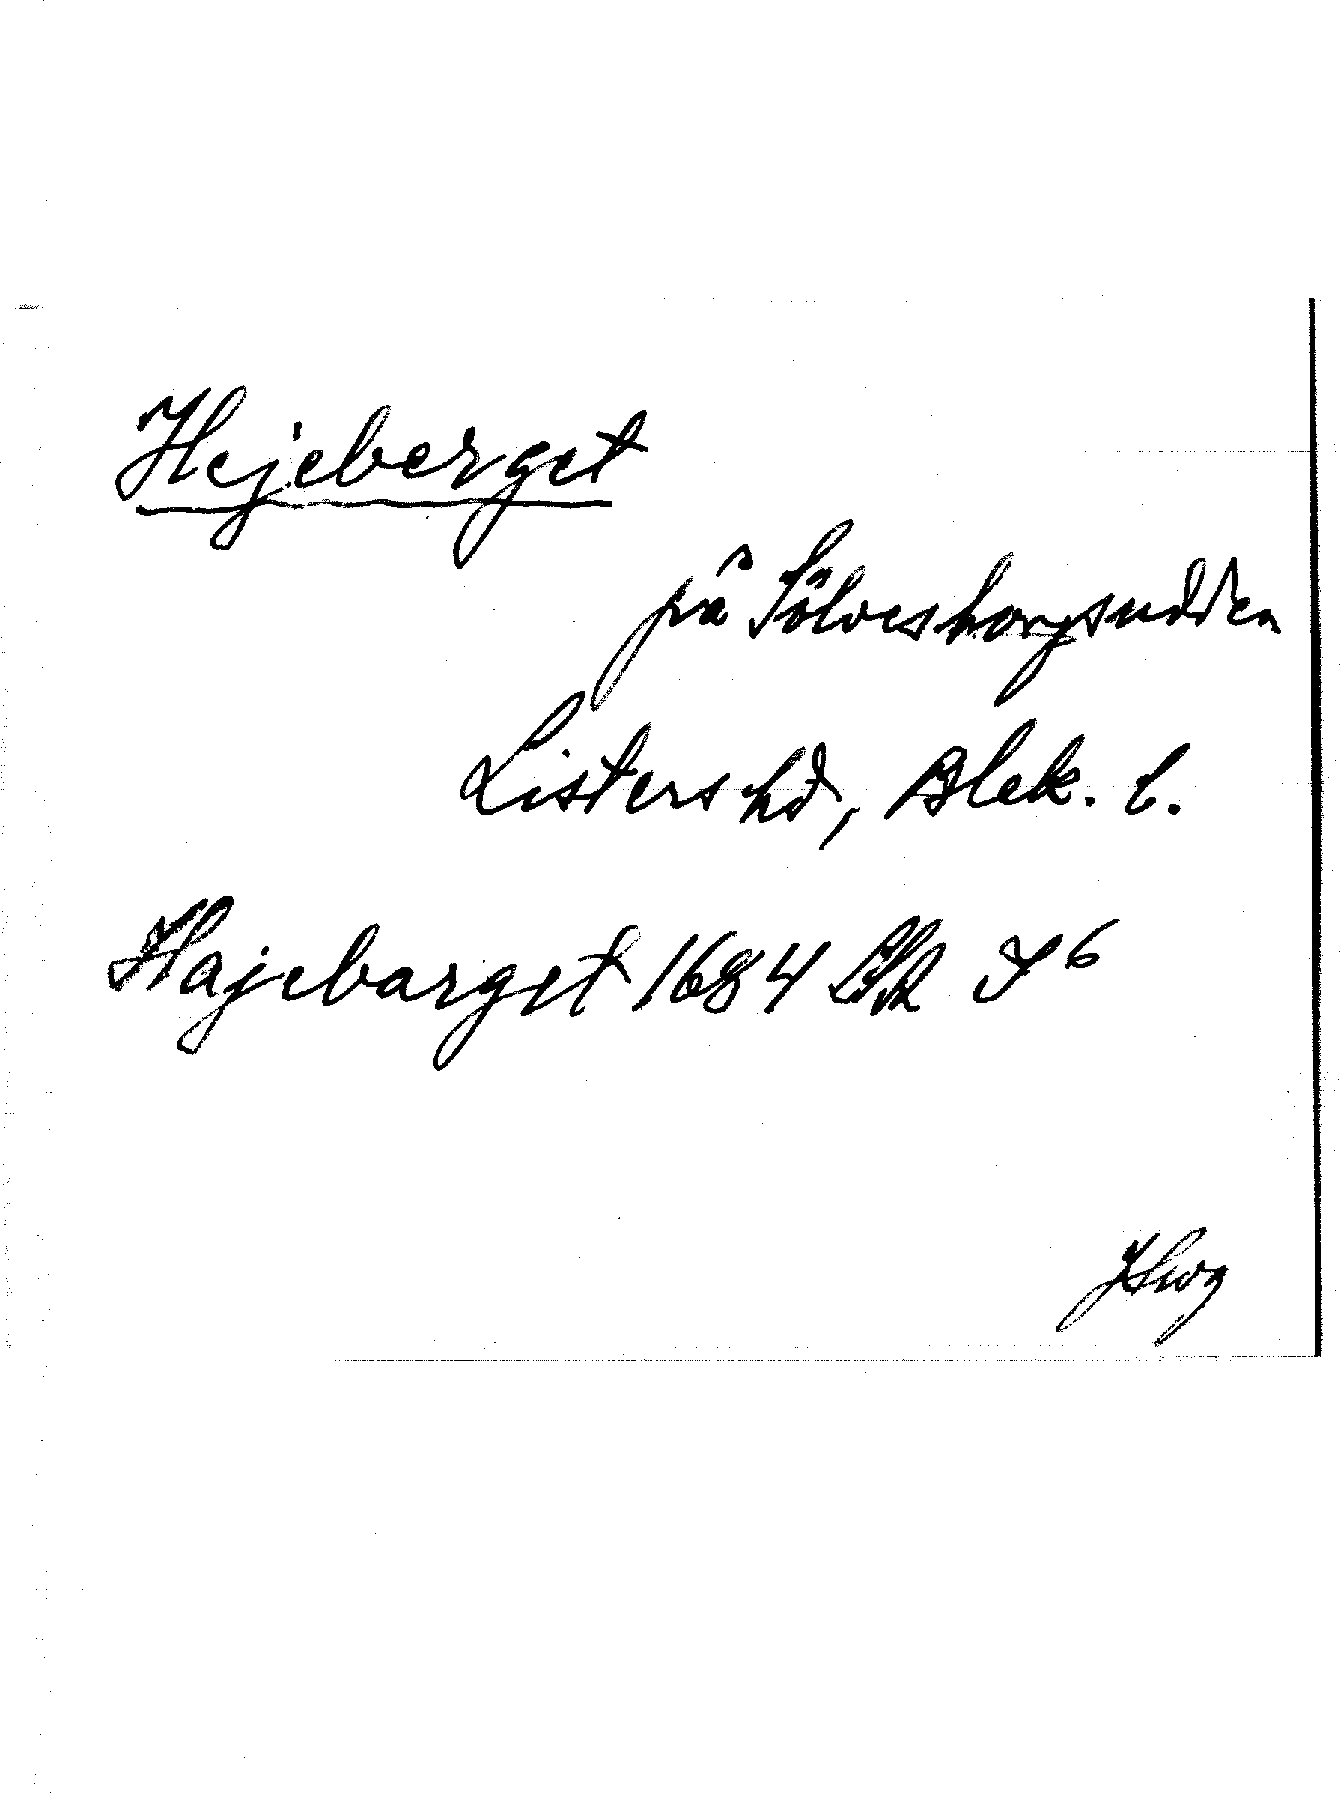 Hejeberget
på Sölvesborgsudden
Listers hd, Blek. l.
Hajebarget 1684 LSA I 6